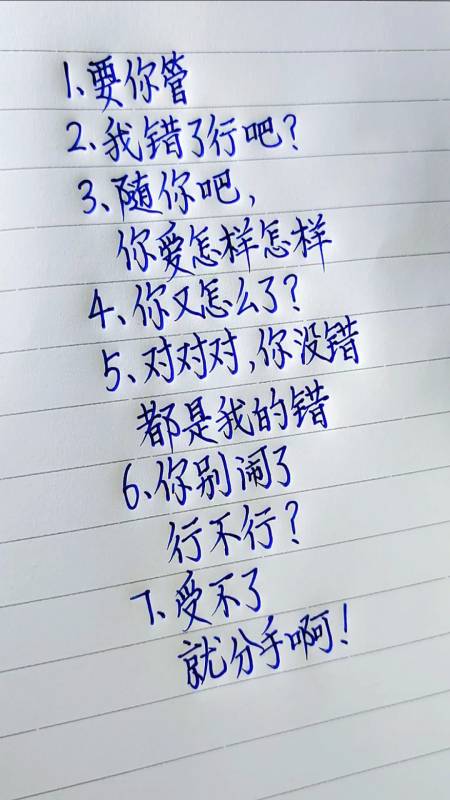 1、要你管
2、我错了行吧?
3、随你吧,
你爱怎样怎样
4、你又怎么了?
5、对对对,你没错
都是我的错
6、你别闹了
行不行?
7、受不了
就分手啊!